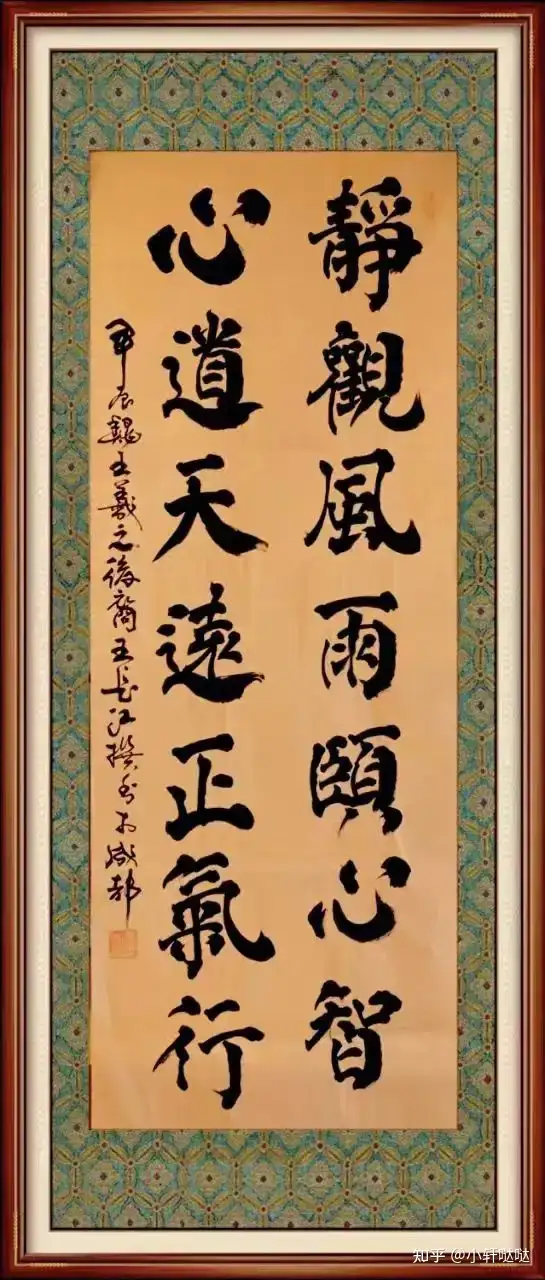 靜觀風雨頤心智
心道天遠正氣行
甲辰王羲之後裔王長江撰書於成都
知乎 @小轩哒哒